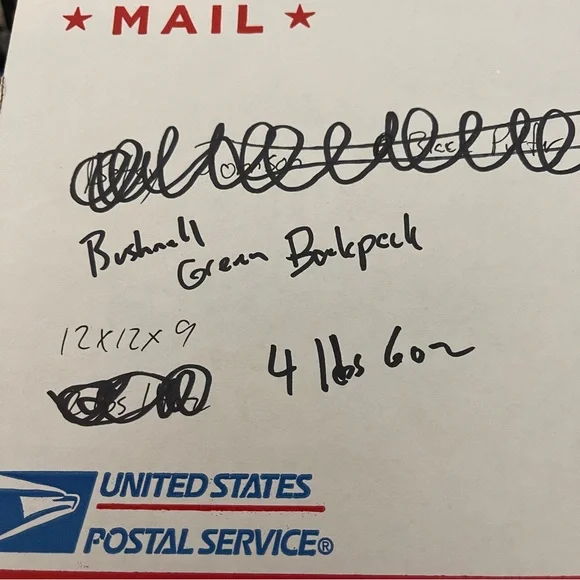 ★ MAIL ★
Bushnell
Green Backpack
12x12x9
4 lbs 6oz
UNITED STATES
POSTAL SERVICE®